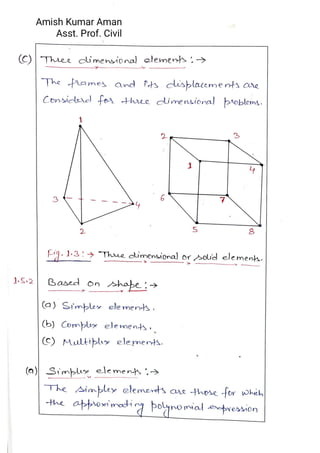 Amish Kumar Aman
Asst. Prof. Civil
(c) Three dimensional elements :→
The frames and its displacements are
Considered for three dimensional problems.
1
2
3
1
4
3
4
6
7
2
5
8
Fig. 1.3 :→ Three dimensional or solid elements.
1.5.2 Based on shape :→
(a) Simplex elements.
(b) Complex elements.
(c) Multiplex elements.
(a) Simplex elements :→
The simplex elements are those for which
the approximating polynomial expression